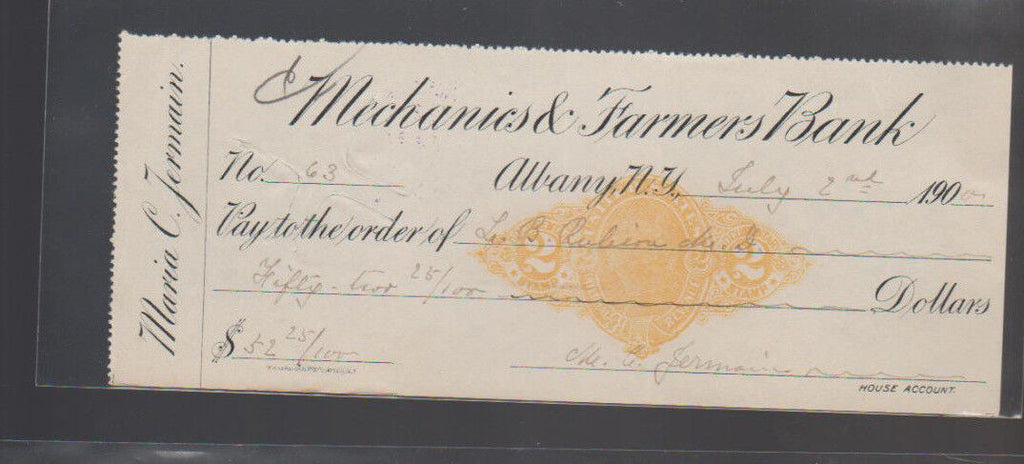 Maria C. Jermain.
Mechanics & Farmers Bank
No. 63 Albany, N.Y., July 2nd 1900
Pay to the order of B. M.D.
Fifty-two 25/100 Dollars
2 2
$ 52 25/100
M. C. Jermain
HOUSE ACCOUNT.